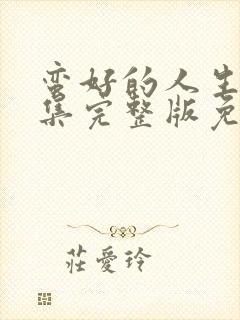 蛮好的人生
集完整版免
莊愛玲